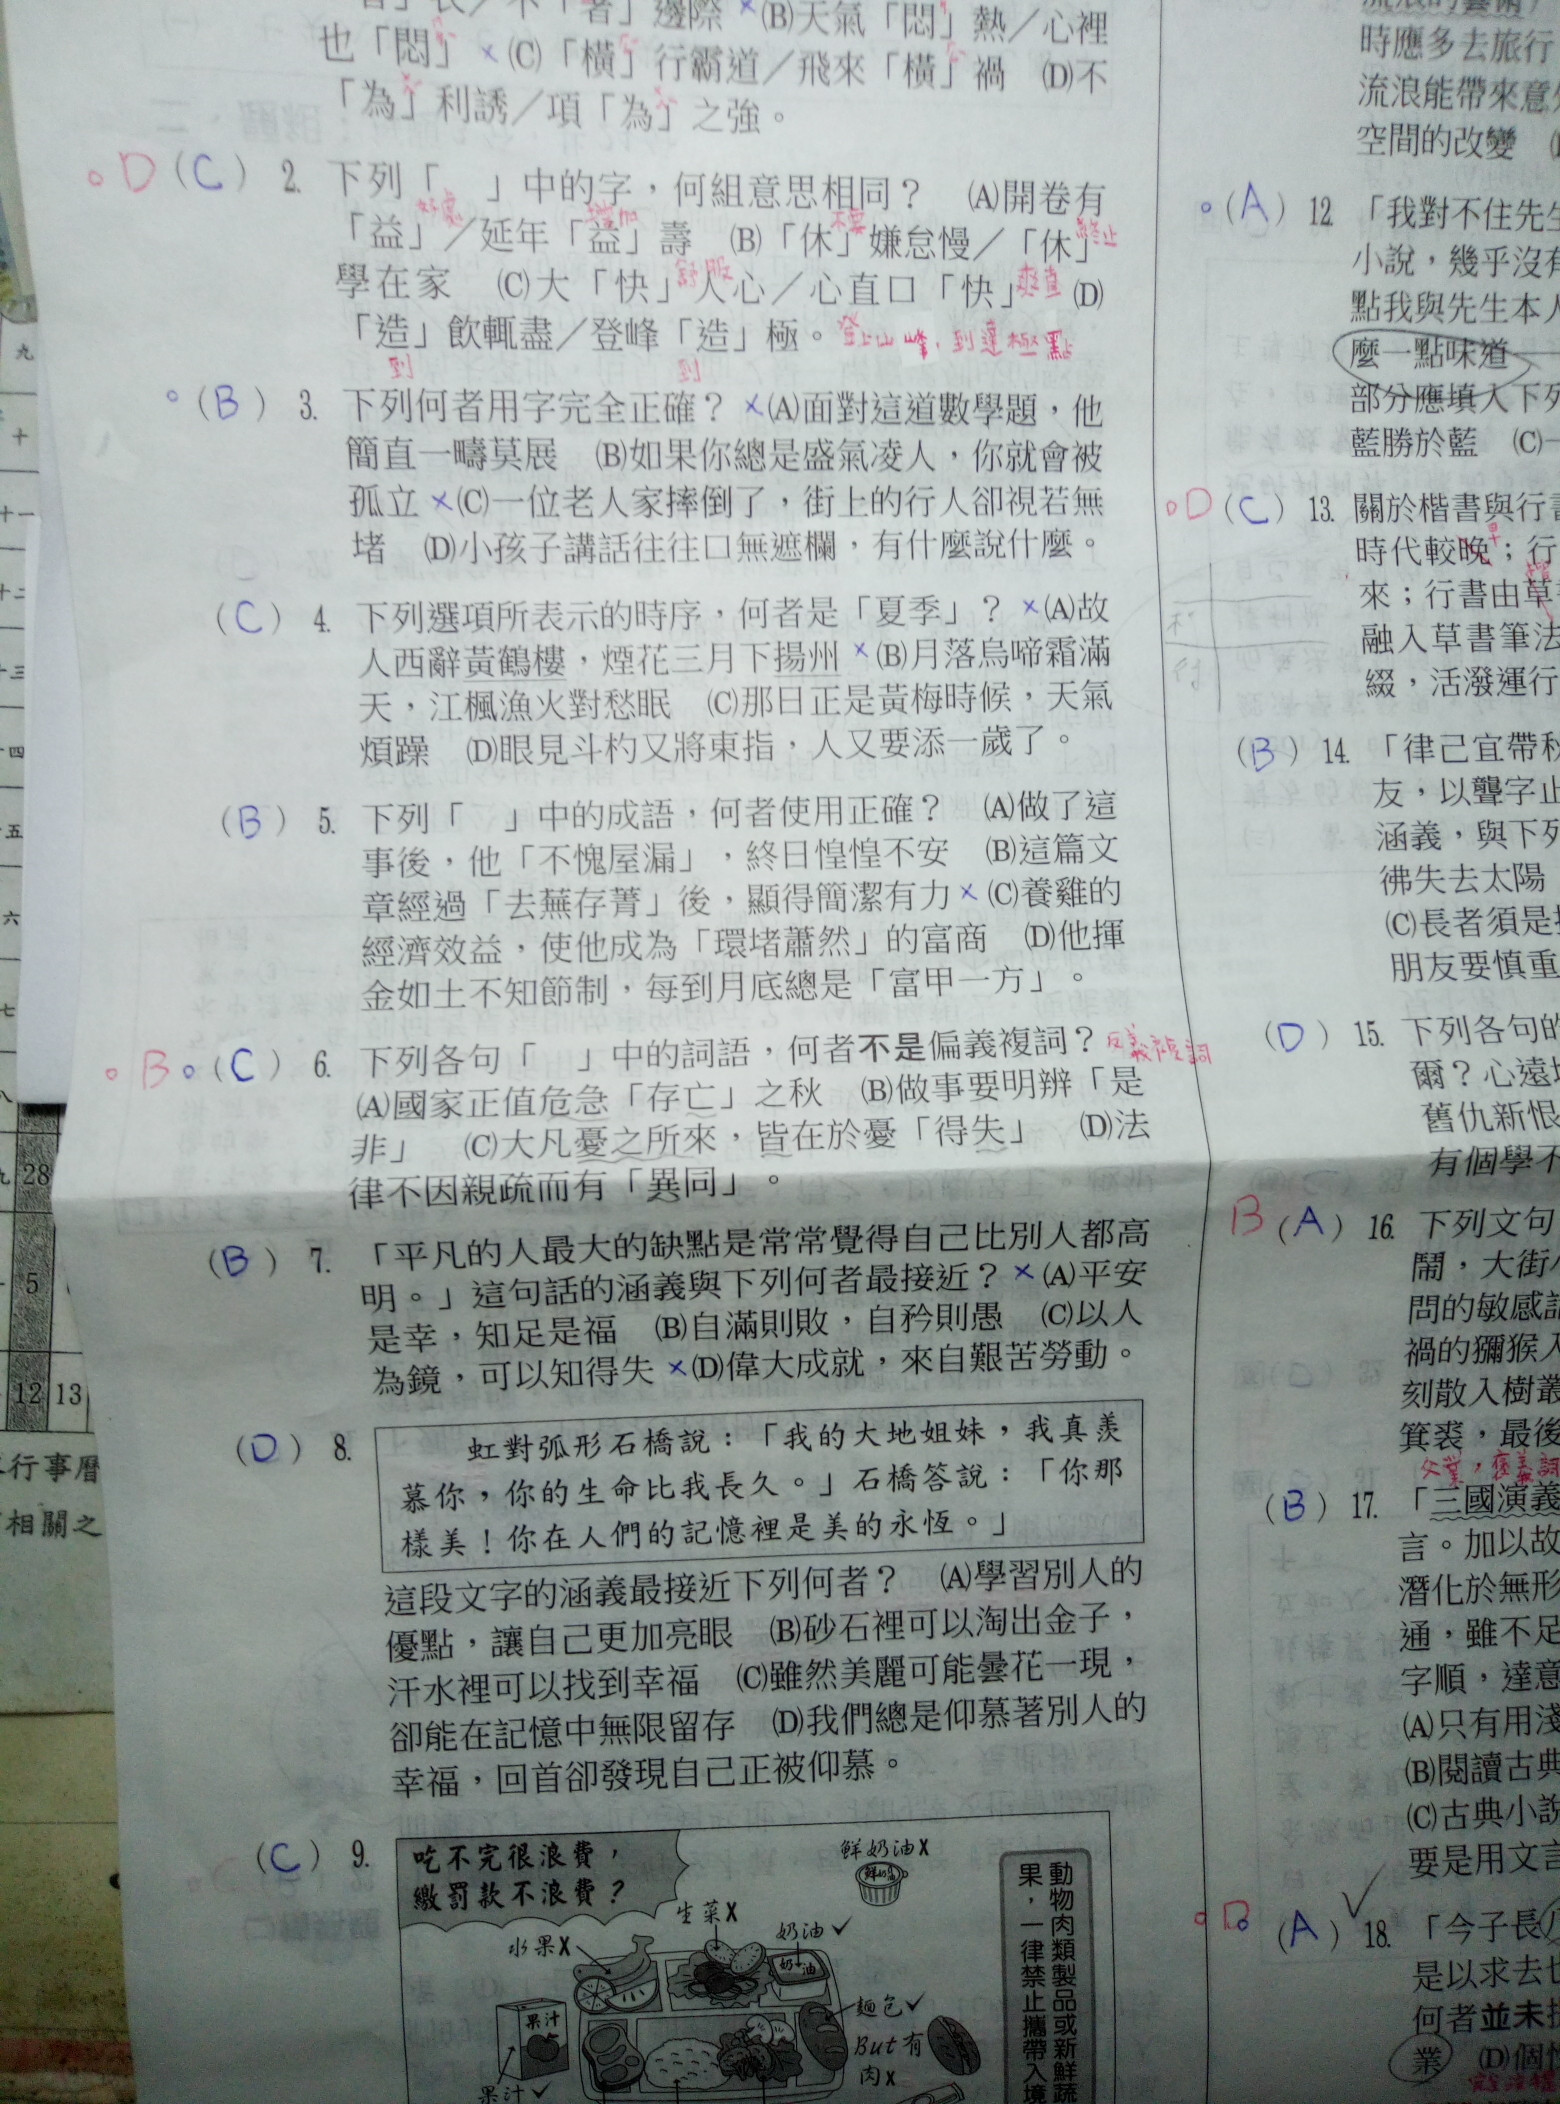 也「悶」×(C)「橫」行霸道／飛來「橫」禍　(D)不
「為」利誘／項「為」之強。
D (C) 2. 下列「　」中的字，何組意思相同？　(A)開卷有
好處 增加 不要 終止
「益」／延年「益」壽　(B)「休」嫌怠慢／「休」
學在家　(C)大「快」人心／心直口「快」　(D)
舒服 爽直
「造」飲輒盡／登峰「造」極。登上山峰，到達極點
到 到
(B) 3. 下列何者用字完全正確？×(A)面對這道數學題，他
簡直一疇莫展　(B)如果你總是盛氣凌人，你就會被
孤立×(C)一位老人家摔倒了，街上的行人卻視若無
堵　(D)小孩子講話往往口無遮欄，有什麼說什麼。
(C) 4. 下列選項所表示的時序，何者是「夏季」？×(A)故
人西辭黃鶴樓，煙花三月下揚州×(B)月落烏啼霜滿
天，江楓漁火對愁眠　(C)那日正是黃梅時候，天氣
煩躁　(D)眼見斗杓又將東指，人又要添一歲了。
(B) 5. 下列「　」中的成語，何者使用正確？　(A)做了這
事後，他「不愧屋漏」，終日惶惶不安　(B)這篇文
章經過「去蕪存菁」後，顯得簡潔有力×(C)養雞的
經濟效益，使他成為「環堵蕭然」的富商　(D)他揮
金如土不知節制，每到月底總是「富甲一方」。
B (C) 6. 下列各句「　」中的詞語，何者不是偏義複詞？反義複詞
(A)國家正值危急「存亡」之秋　(B)做事要明辨「是
非」　(C)大凡憂之所來，皆在於憂「得失」　(D)法
律不因親疏而有「異同」。
(B) 7. 「平凡的人最大的缺點是常常覺得自己比別人都高
明。」這句話的涵義與下列何者最接近？×(A)平安
是幸，知足是福　(B)自滿則敗，自矜則愚　(C)以人
為鏡，可以知得失×(D)偉大成就，來自艱苦勞動。
(D) 8. 虹對弧形石橋說：「我的大地姐妹，我真羨
慕你，你的生命比我長久。」石橋答說：「你那
樣美！你在人們的記憶裡是美的永恆。」
這段文字的涵義最接近下列何者？　(A)學習別人的
優點，讓自己更加亮眼　(B)砂石裡可以淘出金子，
汗水裡可以找到幸福　(C)雖然美麗可能曇花一現，
卻能在記憶中無限留存　(D)我們總是仰慕著別人的
幸福，回首卻發現自己正被仰慕。
(C) 9. 吃不完很浪費，
繳罰款不浪費？
鮮奶油X
生菜X
奶油✓
奶油
水果X
麵包✓
But有
肉X
果汁
果汁✓
動物肉類製品或新鮮蔬
果，一律禁止攜帶入境
時應多去旅行
流浪能帶來意
空間的改變
(A) 12 「我對不住先生
小說，幾乎沒有
點我與先生本人
麼一點味道
部分應填入下列
藍勝於藍　(C)
D (C) 13. 關於楷書與行書
早
時代較晚；行
來；行書由草
融入草書筆法
綴，活潑運行
(B) 14. 「律己宜帶秋
友，以聾字止
涵義，與下列
彿失去太陽
(C)長者須是
朋友要慎重
(D) 15. 下列各句的
爾？心遠地
舊仇新恨
有個學不
B (A) 16. 下列文句
鬧，大街小
問的敏感話
禍的獼猴入
刻散入樹叢
箕裘，最後
父業，褒義詞
(B) 17. 「三國演義
言。加以故
潛化於無形
通，雖不足
字順，達意
(A)只有用淺
(B)閱讀古典
(C)古典小說
要是用文言
(A) 18. 「今子長八
是以求去也
何者並未
業　(D)個性
行事曆
相關之
九
十
十一
十二
十三
28
5
12 13